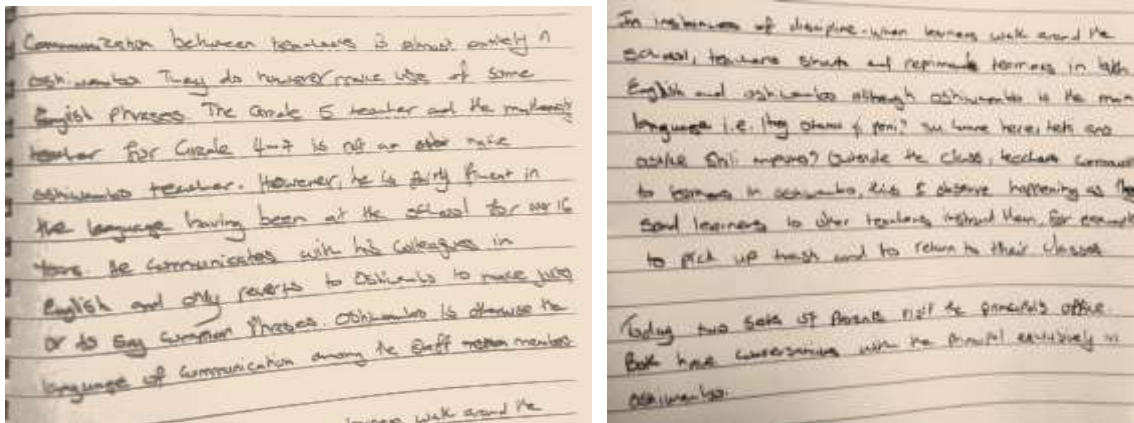 Communication between teachers is almost entirely in
oshiwambo They do however make use of some
English Phrases. The Grade 5 teacher and the mathematics
teacher for Grade 4-7 is not an native
oshiwambo teacher. However, he is fairly fluent in
the language having been at the school for over 16
Years. He communicates with his colleagues in
English and only reverts to Oshiwambo to make jokes
or to say common phrases. Oshiwambo is otherwise the
language of communication among the staff members
walk around the
In instances of discipline when learners walk around the
school, teachers shouts and reprimands learners in both
English and oshiwambo although oshiwambo is the main
language i.e. come here, lets and
Outside the class, teachers
to learners in oshiwambo, this I observe happening as they
send learners to other teachers instruct them, for example
to pick up trash and to return to their classes
Today two sets of Parents visit the principal's office.
Both have conversations with the principal exclusively in
oshiwambo.